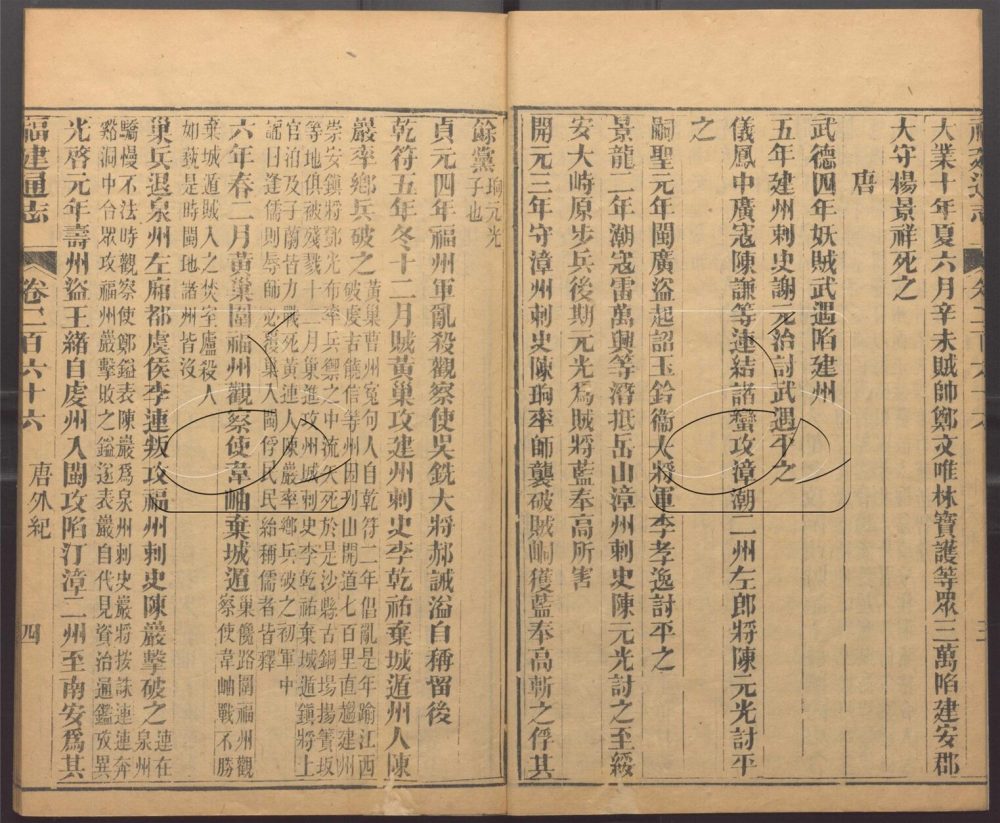 大業十年夏六月辛未賊帥鄭文唯林寶護等眾三萬陷建安郡
大守楊景祥死之
唐
武德四年妖賊武遇陷建州
五年建州刺史謝元治討武遇平之
儀鳳中廣寇陳謙等連結諸蠻攻漳潮二州左郎將陳元光討平
之
嗣聖元年閩廣盜起詔玉鈐衛大將軍李孝逸討平之
景龍二年潮寇雷萬興等潛抵岳山漳州刺史陳元光討之至綏
安大峙原步兵後期元光爲賊將藍奉高所害
開元三年守漳州刺史陳珦率師襲破賊峒獲藍奉高斬之俘其
餘黨珦元光
子也
貞元四年福州軍亂殺觀察使吳銑大將郝誠溢自稱留後
乾符五年冬十二月賊黃巢攻建州刺史李乾祐棄城遁州人陳
巖率鄉兵破之黃巢曹州寃句人自乾符二年倡亂是年踰江西
破虔吉饒信等州因刋山開道七百里直趨建州
崇安鎮將鄧光布率兵禦之中流矢死於是沙縣古銅場揚簀坂
等地俱被殘戮十二月巢進攻州城刺史李乾祐棄城遁鎮將上
官洎及子蘭皆力戰死黃連人陳巖率鄉兵破之初軍中
謠曰逢儒則辱師必覆巢入閩俘民民紿稱儒者皆釋
六年春二月黃巢圍福州觀察使韋岫棄城遁巢儳路圍福州觀
察使韋岫戰不勝
棄城遁賊入之焚室廬殺人
如蓺是時閩地諸州皆沒
巢兵退泉州左廂都虞侯李連叛攻福州刺史陳巖擊破之連在
泉州
驕慢不法時觀察使鄭鎰表陳巖爲泉州刺史巖將按誅連連奔
谿洞中合眾攻福州巖擊敗之鎰遂表巖自代見資治通鑑攷異
光啓元年壽州盜王緒自虔州入閩攻陷汀漳二州至南安爲其
福建通志
卷二百六十六
唐外紀
四